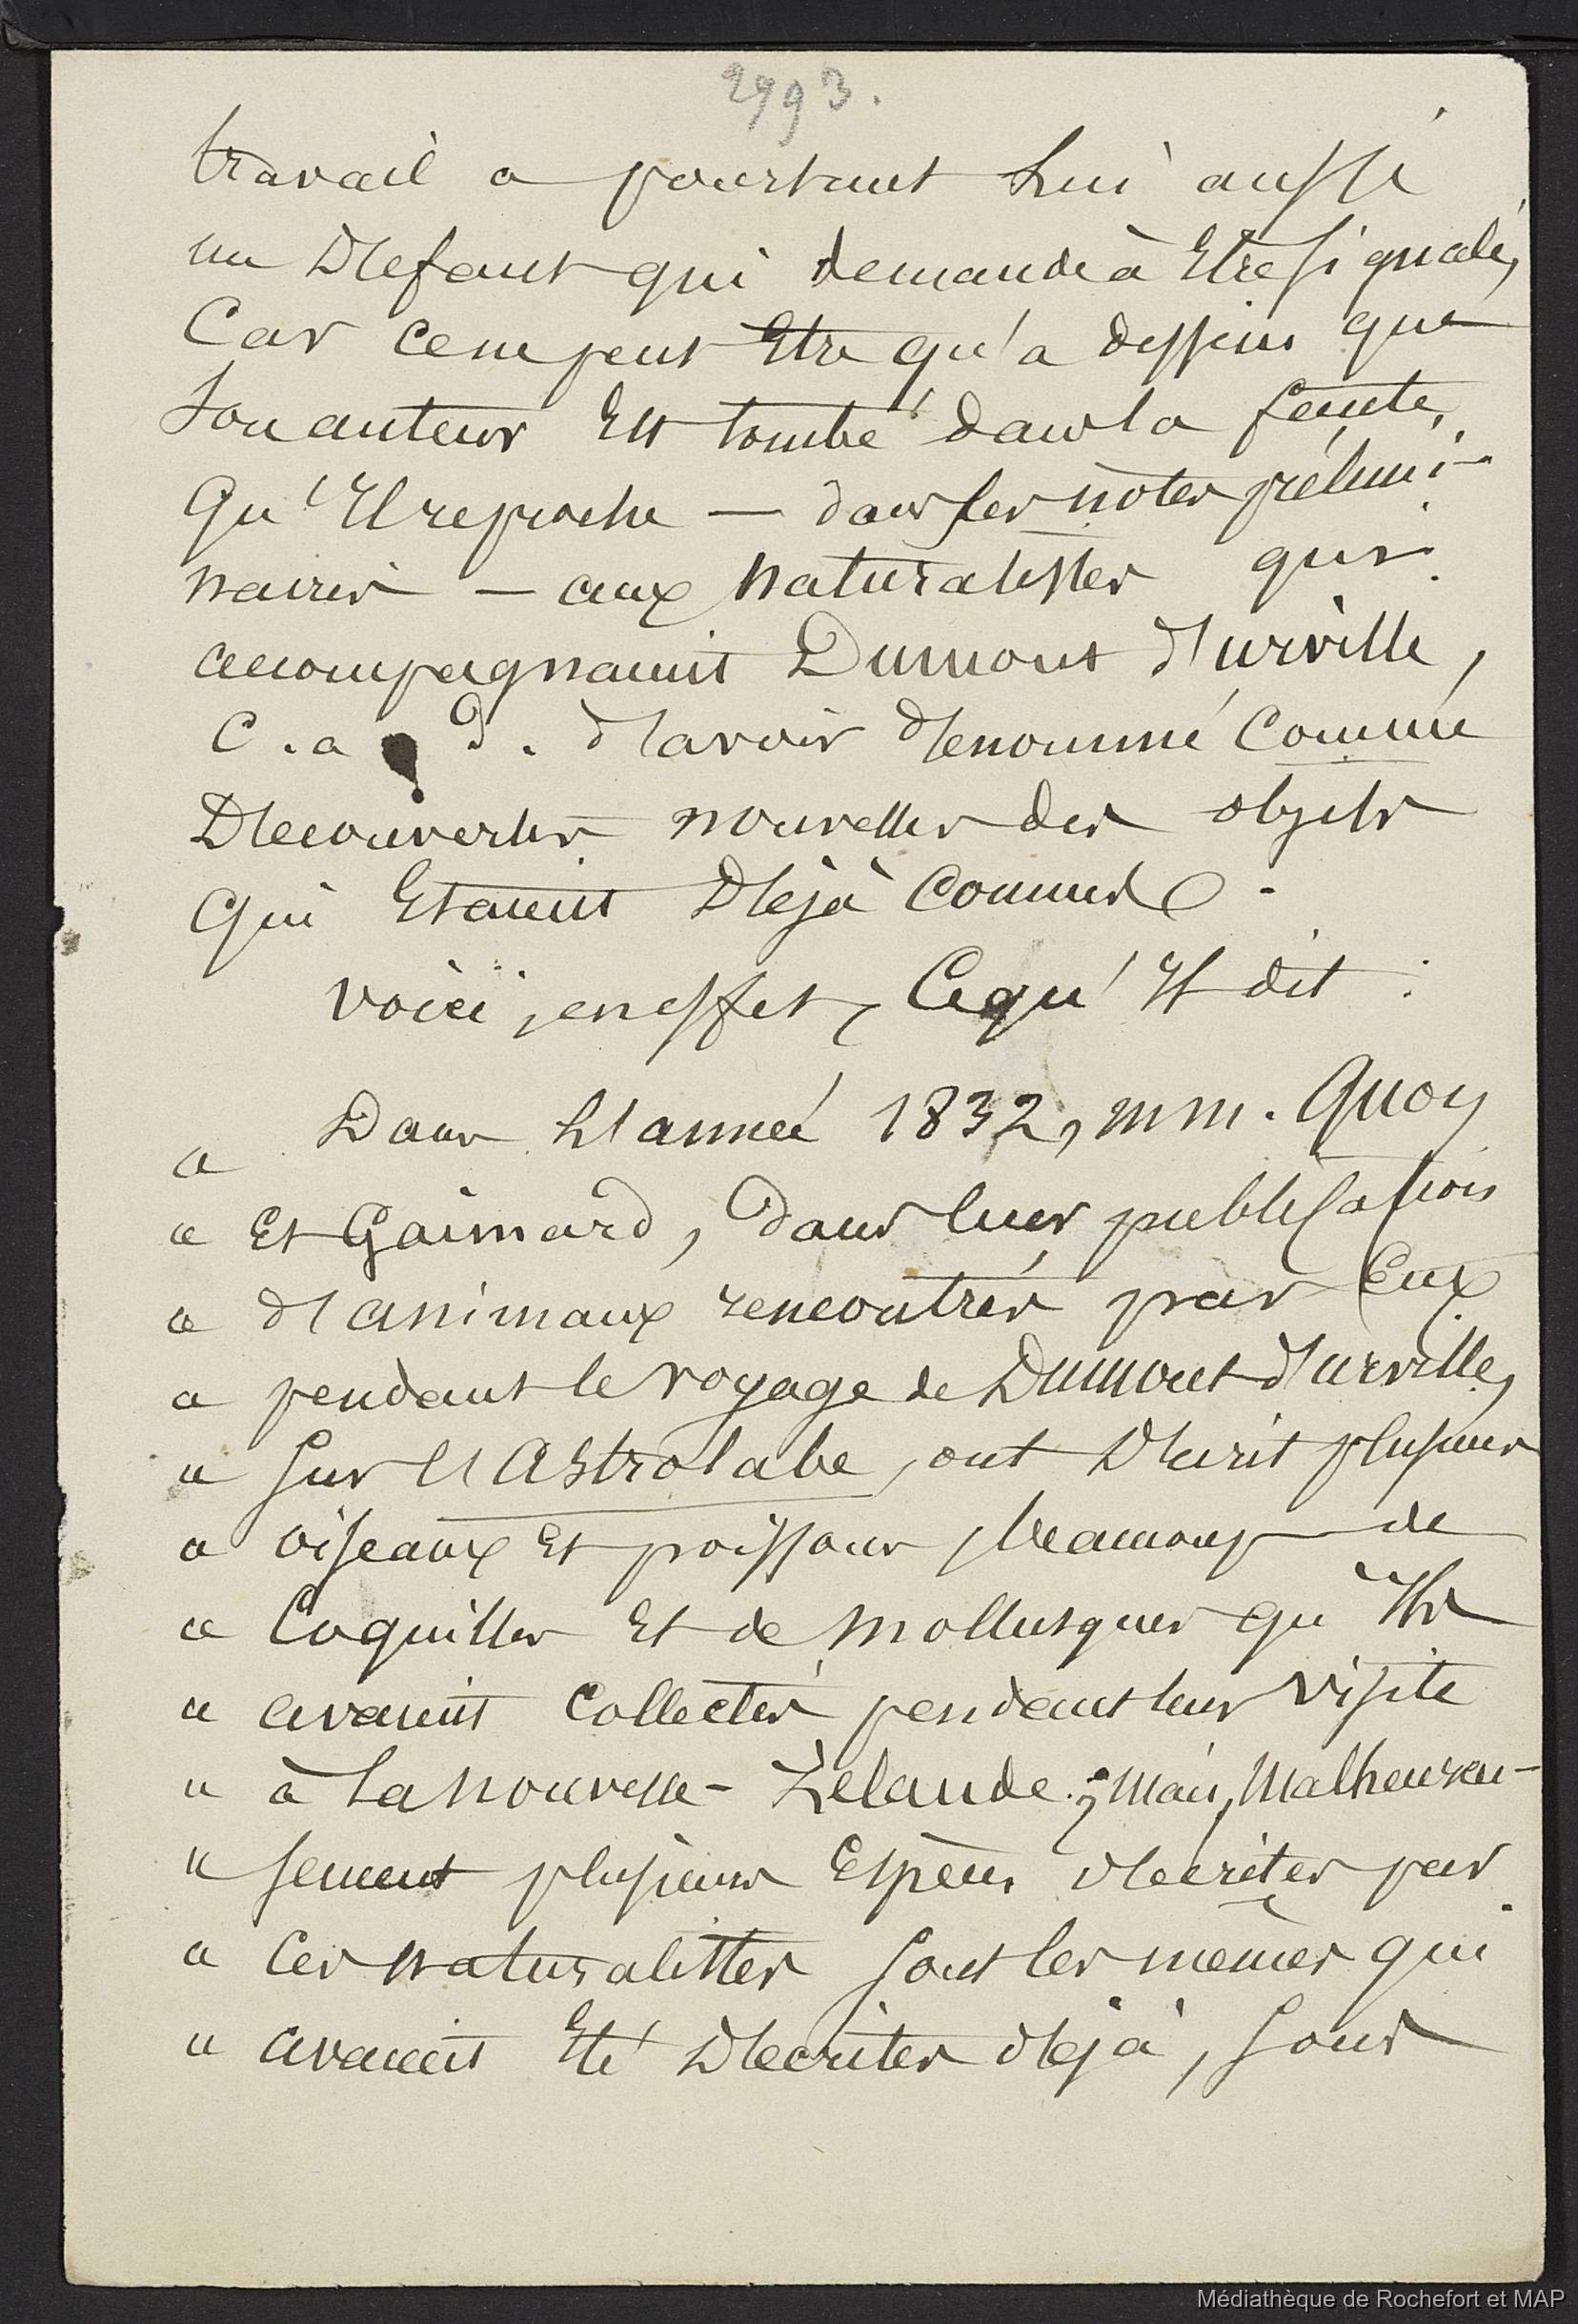 2993.
travail a pourtant lui aussi
un Defaut qui demande à Etre signalé,
Car ce ne peut Etre qu'a dessein que
Son auteur Est tombé dans la faute,
Qu'Il reproche — dans ses notes prélimi-
naires — aux Naturalistes qui
accompagnaient Dumont d'urville,
C. a. d. d'avoir denommé Comme
Decouvertes nouvelles des objets
Qui Etaient Dejà Connus.
voici, en effet, Ce qu'Il dit :
« Dans l'année 1832, mm. Quoy
« Et Gaimard, dans leur publication
« d'animaux rencontrés par Eux
« pendant le voyage de Dumont d'urville,
« Sur l'Astrolabe, ont Decrit plusieurs
« oiseaux Et poissons, beaucoup de
« Coquilles Et de mollusques qu'Ils
« avaient Collectés pendant leur visite
« à la nouvelle-Zelande ; mais, malheureu-
« sement plusieurs Espèces decrites par
« Ces naturalistes sont les mêmes qui
« avaient Eté Decrites dejà, sous
Médiathèque de Rochefort et MAP